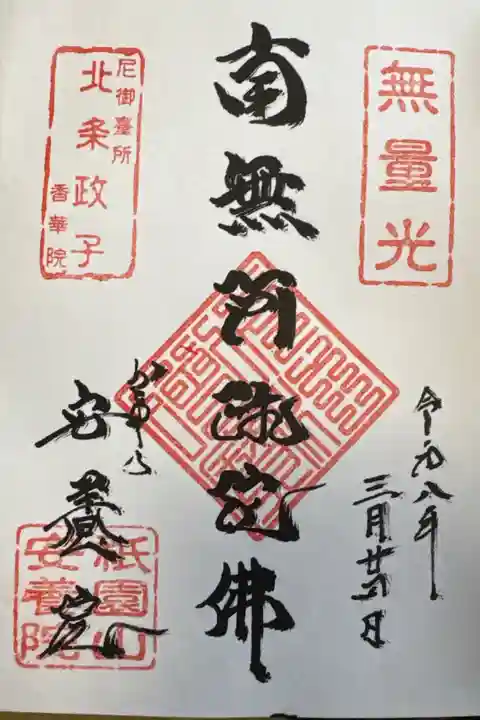 無量光
令和八年
三月廿
日
南無阿弥陀佛
尼御臺所
北条政子
香華院
かまくら
安養院
祇園山
安養院